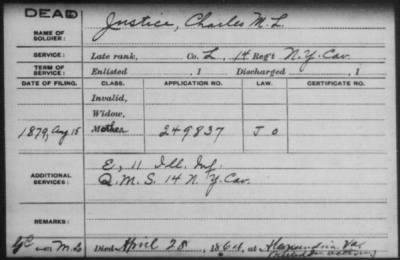 DEAD
NAME OF SOLDIER: Justice, Charles M. L.
SERVICE: Late rank, Co. L, 14 Reg't N.Y. Cav.
TERM OF SERVICE: Enlisted , 1 Discharged , 1
DATE OF FILING. CLASS. APPLICATION NO. LAW. CERTIFICATE NO.
Invalid,
Widow,
1879, Aug 15 Mother 249837 J O
ADDITIONAL SERVICES: E, 11 Ill. Inf.
Q.M.S. 14 N.Y. Cav.
REMARKS:
Died April 28, 1864, at Alexandria